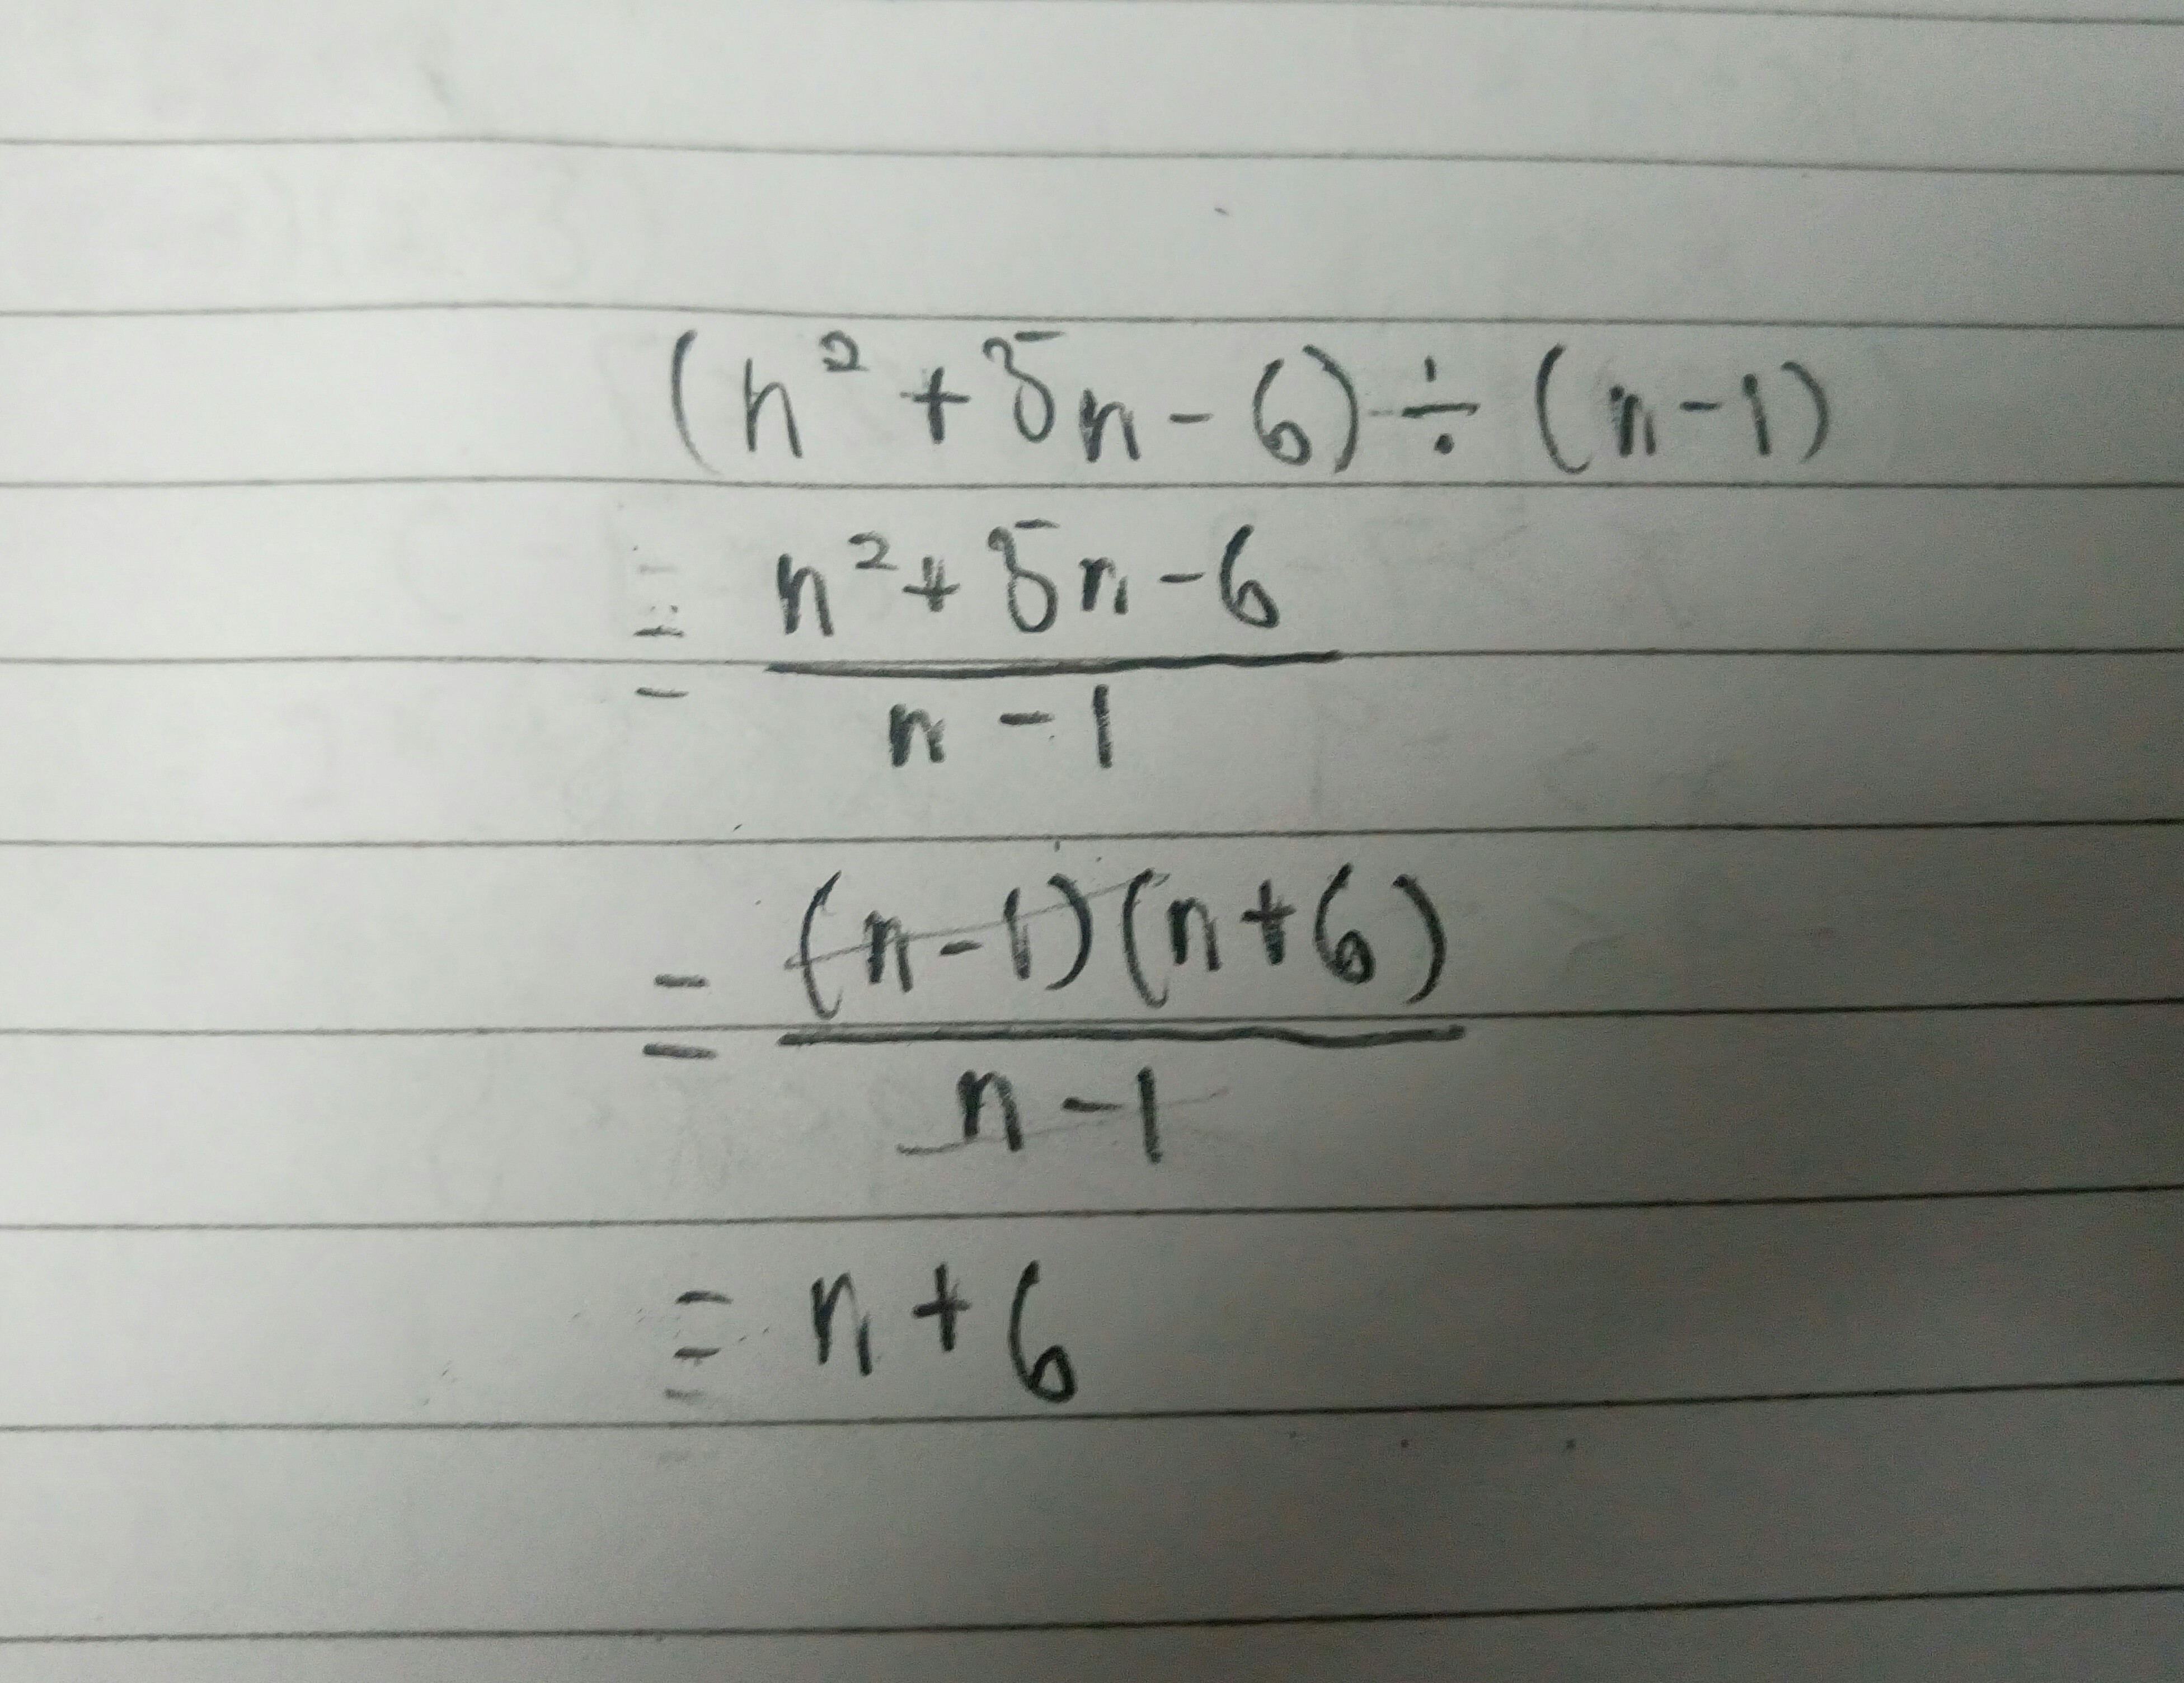 (n² + 5n - 6) ÷ (n - 1)
= n² + 5n - 6
n - 1
= (n - 1)(n + 6)
n - 1
= n + 6